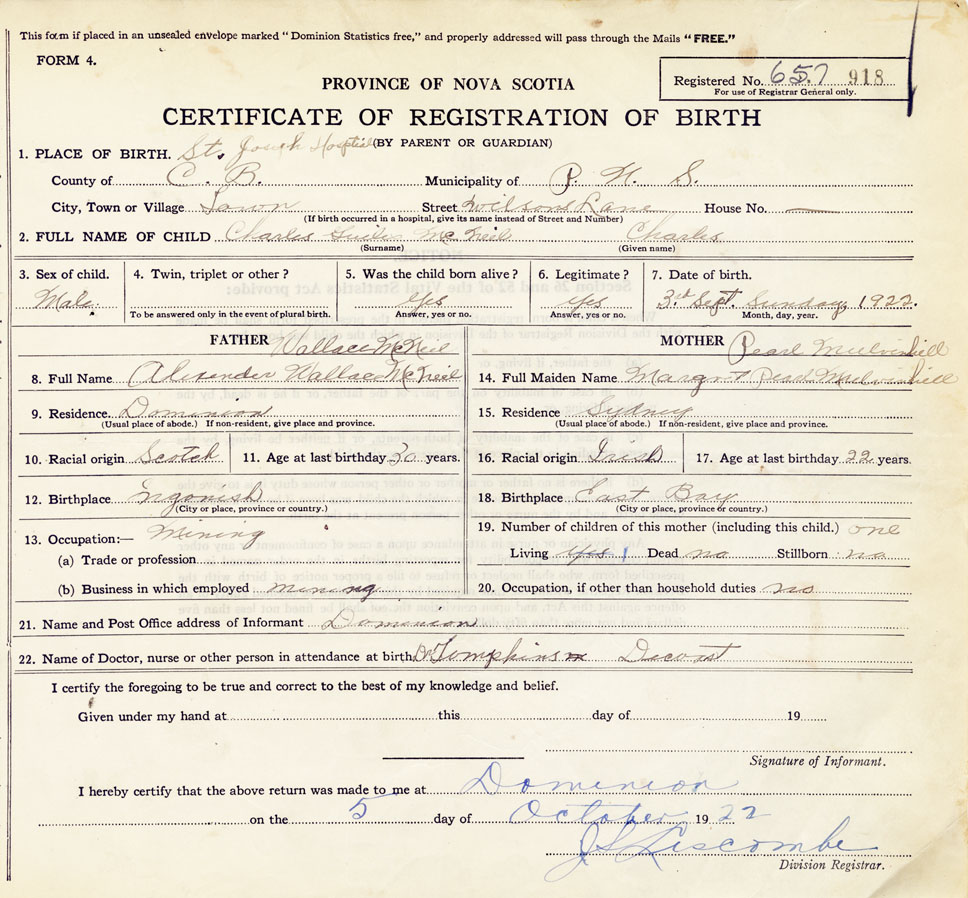 This form if placed in an unsealed envelope marked "Dominion Statistics free," and properly addressed will pass through the Mails "FREE."
FORM 4.
Registered No. 657 918
For use of Registrar General only.
PROVINCE OF NOVA SCOTIA
CERTIFICATE OF REGISTRATION OF BIRTH
(BY PARENT OR GUARDIAN)
1. PLACE OF BIRTH. St. Joseph Hospital
County of C. B. Municipality of P. H. S.
City, Town or Village Town Street Wilsons Lane House No. —
(If birth occurred in a hospital, give its name instead of Street and Number)
2. FULL NAME OF CHILD Charles McNeil Charles
(Surname) (Given name)
3. Sex of child. 4. Twin, triplet or other? 5. Was the child born alive? 6. Legitimate? 7. Date of birth.
Male. Yes Yes 3rd Sept. Sunday 1922.
To be answered only in the event of plural birth. Answer, yes or no. Answer, yes or no. Month, day, year.
FATHER Wallace McNeil MOTHER Pearl
8. Full Name Alexender Wallace McNeil 14. Full Maiden Name Margret Pearl
9. Residence. Dominion 15. Residence Sydney
(Usual place of abode.) If non-resident, give place and province. (Usual place of abode.) If non-resident, give place and province.
10. Racial origin Scotch 11. Age at last birthday 30 years. 16. Racial origin Irish 17. Age at last birthday 22 years.
12. Birthplace Ingonish 18. Birthplace East Bay
(City or place, province or country.) (City or place, province or country.)
13. Occupation:— Mining 19. Number of children of this mother (including this child.) one
(a) Trade or profession Living yes 1 Dead no Stillborn no
(b) Business in which employed mining 20. Occupation, if other than household duties no
21. Name and Post Office address of Informant Dominion
22. Name of Doctor, nurse or other person in attendance at birth Dr Tompkins
I certify the foregoing to be true and correct to the best of my knowledge and belief.
Given under my hand at this day of 19
Signature of Informant.
I hereby certify that the above return was made to me at Dominion
on the 5 day of October 19 22
J S Liscombe
Division Registrar.